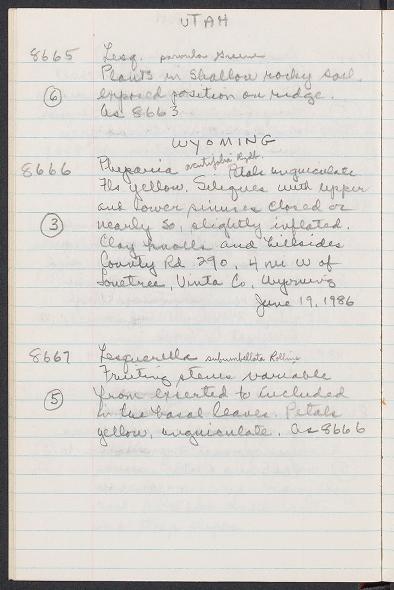 UTAH
8665 Lesq. parvula Greene
Plants in shallow rocky soil,
⑥ exposed position on ridge.
As 8663
WYOMING
8666 Physaria acutifolia Rydb. Petals unguiculate
Fls yellow. Siliques with upper
and lower sinuses closed or
③ nearly so, slightly inflated.
Clay knolls and hillsides
County Rd 290, 4 mi W of
Lonetree, Uinta Co, Wyoming
June 19, 1986
8667 Lesquerella subumbellata Rollins
Fruiting stems variable
⑤ from exserted to included
in the basal leaves. Petals
yellow, unguiculate. As 8666